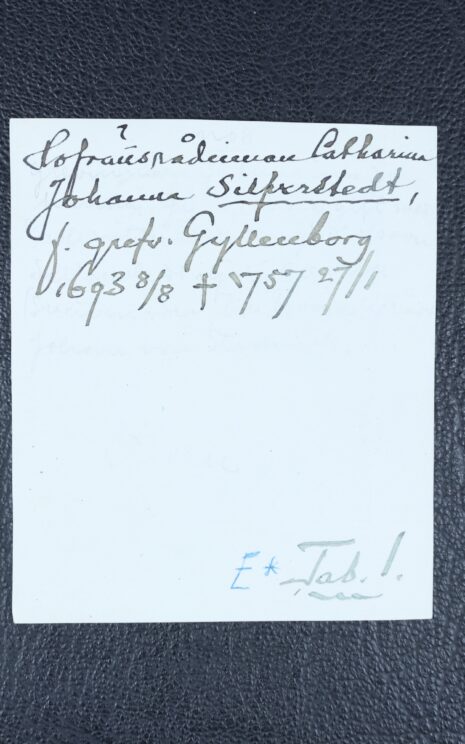 ?
Hofrättsrådinnan Catharina
Johanna Silfverstedt,
f. grefv. Gyllenborg
1693 8/8 † 1757 27/1
E* Tab. 1.